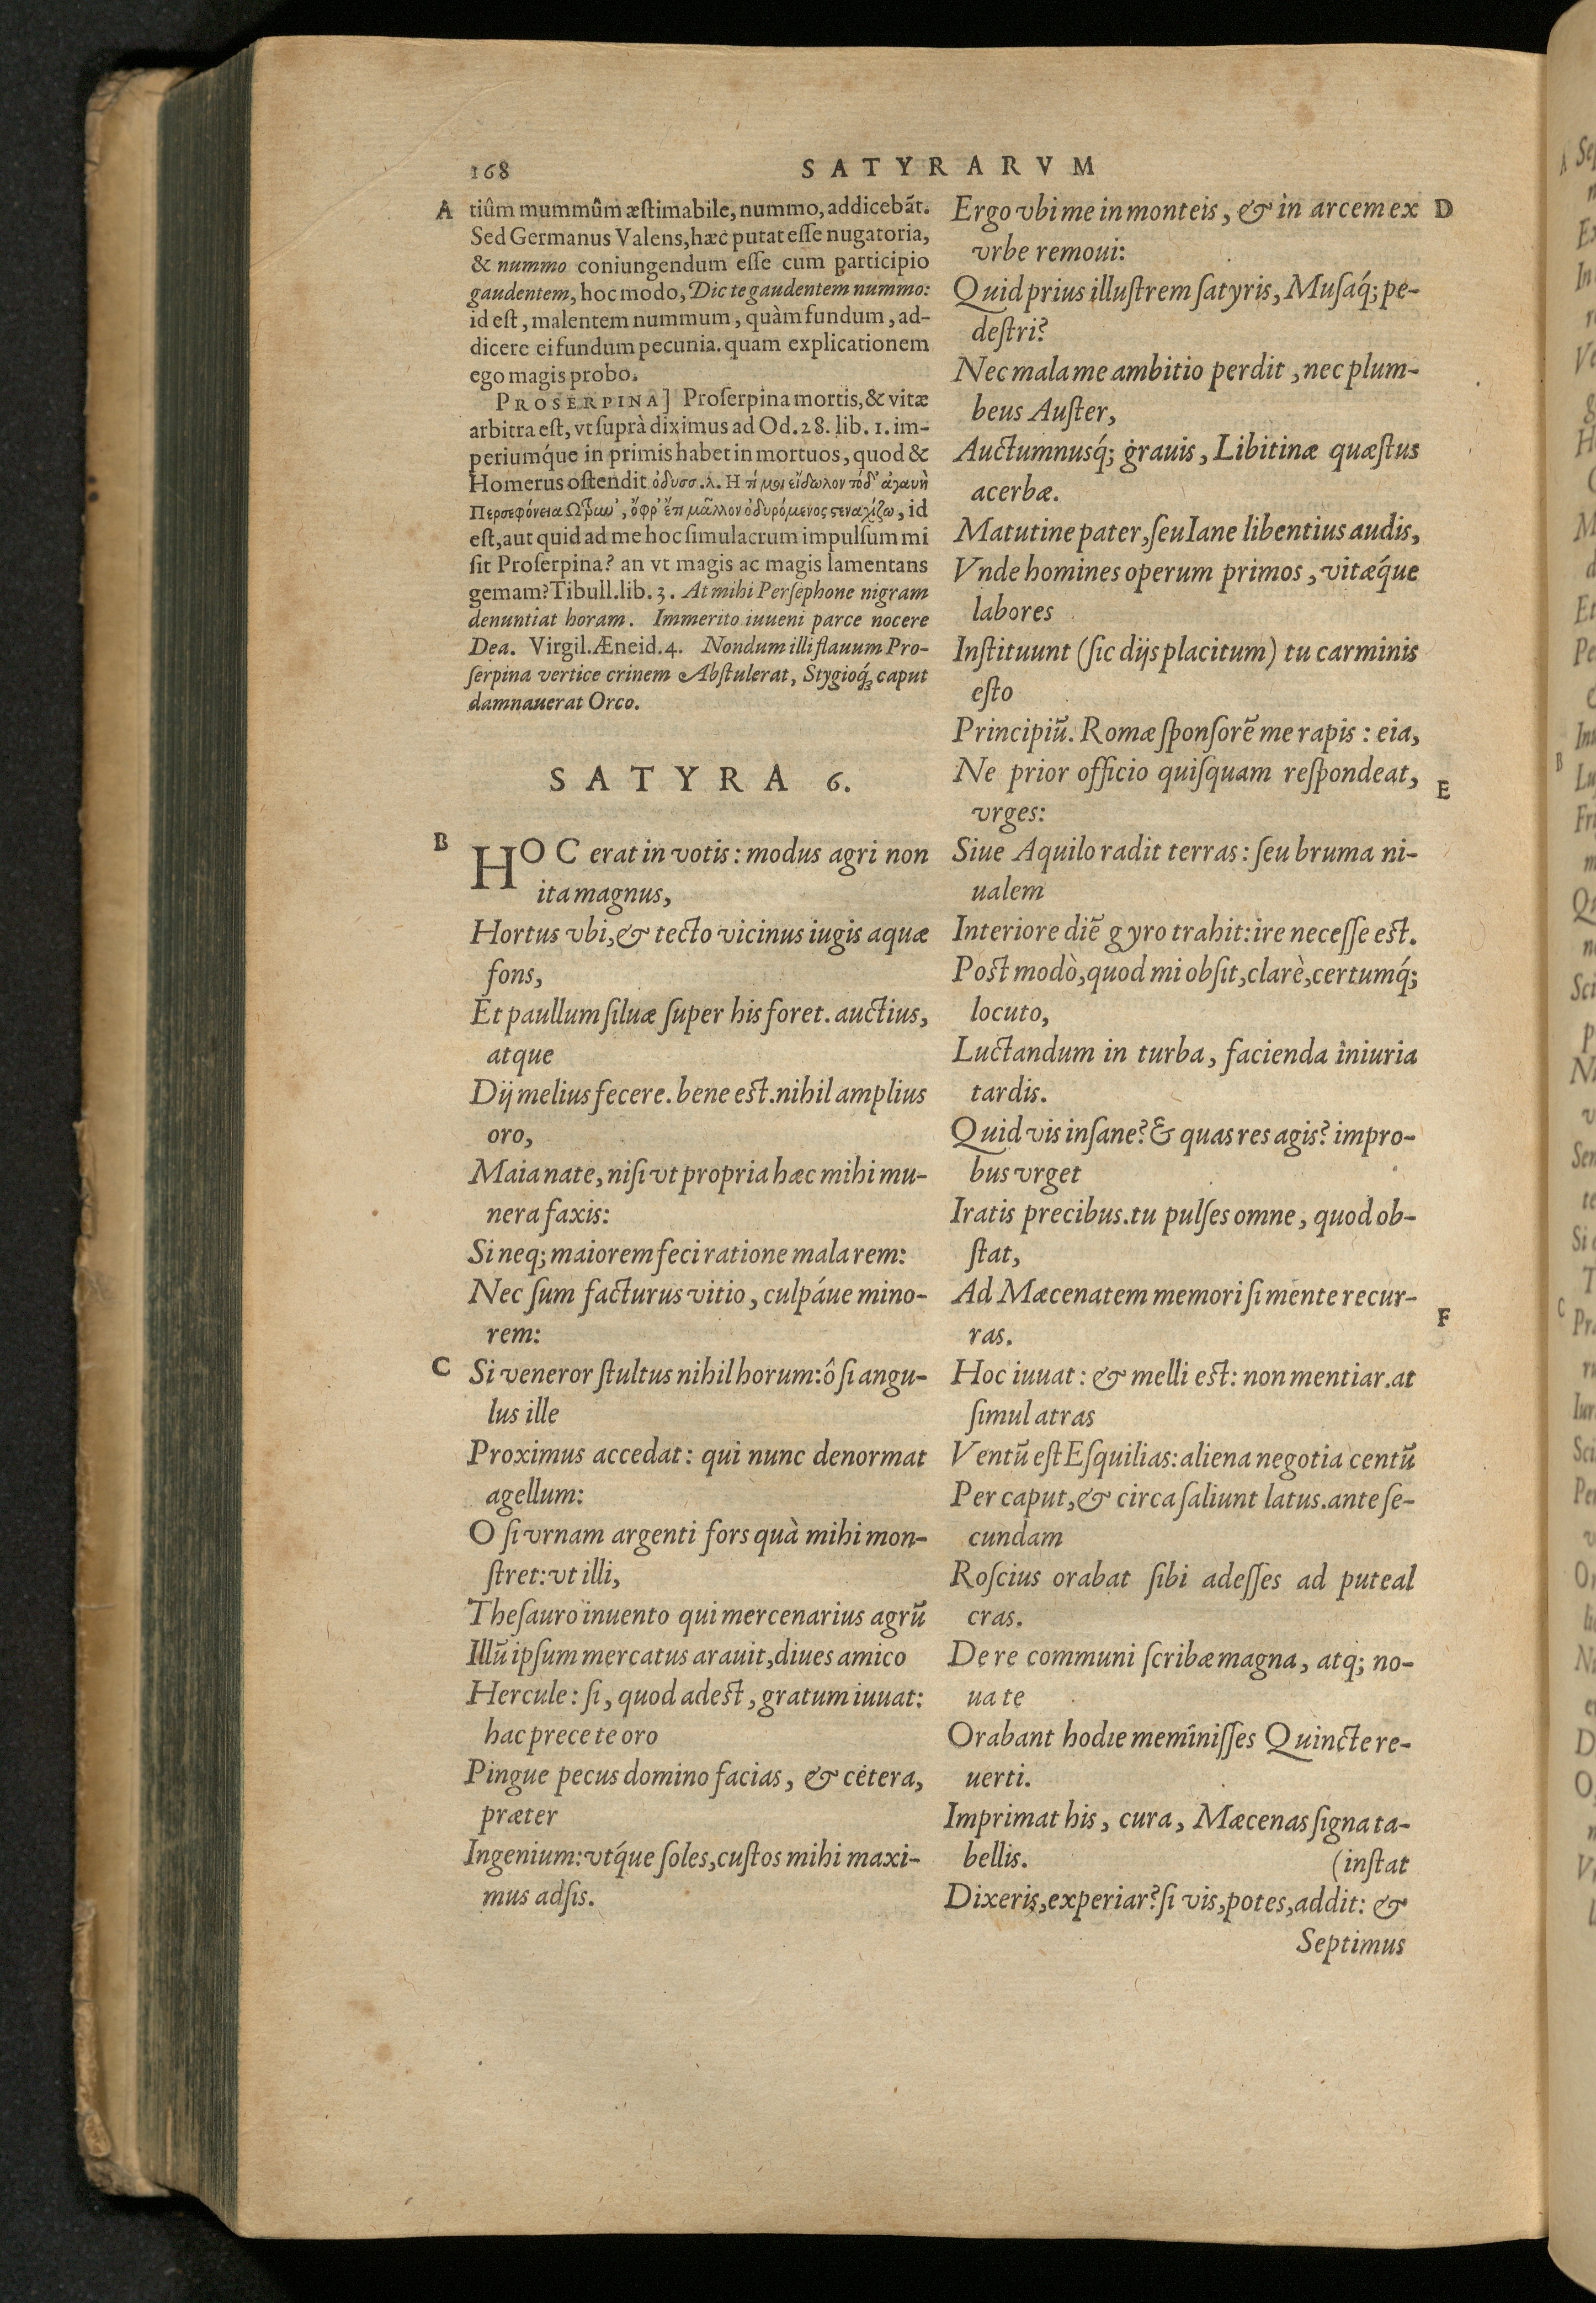 168
SATYRARVM
A
tiûm mummûm æstimabile, nummo, addicebãt.
Sed Germanus Valens, hæc putat esse nugatoria,
& nummo coniungendum esse cum participio
gaudentem, hoc modo, Dic te gaudentem nummo:
id est, malentem nummum, quàm fundum, ad-
dicere ei fundum pecunia. quam explicationem
ego magis probo.
PROSERPINA] Proserpina mortis, & vitæ
arbitra est, vt suprà diximus ad Od. 28. lib. 1. im-
periumq́ue in primis habet in mortuos, quod &
Homerus ostendit ὀδυσσ. λ. Η τί μοι εἴδωλον τόδ' ἀγαυὴ
Περσεφόνεια Ωτρυν', ὄφρ' ἔτι μᾶλλον ὀδυρόμενος στεναχίζω, id
est, aut quid ad me hoc simulacrum impulsum mi
sit Proserpina? an vt magis ac magis lamentans
gemam? Tibull. lib. 3. At mihi Persephone nigram
denuntiat horam. Immerito iuueni parce nocere
Dea. Virgil. Æneid. 4. Nondum illi flauum Pro-
serpina vertice crinem Abstulerat, Stygioq́; caput
damnauerat Orco.
SATYRA 6.
B
HOC erat in votis: modus agri non
ita magnus,
Hortus vbi, & tecto vicinus iugis aquæ
fons,
Et paullum siluæ super his foret. auctius,
atque
Dij melius fecere. bene est. nihil amplius
oro,
Maia nate, nisi vt propria hæc mihi mu-
nera faxis:
Si neq; maiorem feci ratione mala rem:
Nec sum facturus vitio, culpáue mino-
rem:
C
Si veneror stultus nihil horum: ô si angu-
lus ille
Proximus accedat: qui nunc denormat
agellum:
O si vrnam argenti fors quà mihi mon-
stret: vt illi,
Thesauro inuento qui mercenarius agrũ
Illũ ipsum mercatus arauit, diues amico
Hercule: si, quod adest, gratum iuuat:
hac prece te oro
Pingue pecus domino facias, & cetera,
præter
Ingenium: vtq́ue soles, custos mihi maxi-
mus adsis.
D
Ergo vbi me in monteis, & in arcem ex
vrbe remoui:
Quid prius illustrem satyris, Musaq́; pe-
destri?
Nec mala me ambitio perdit, nec plum-
beus Auster,
Auctumnusq́; grauis, Libitinæ quæstus
acerbæ.
Matutine pater, seu Iane libentius audis,
Vnde homines operum primos, vitæq́ue
labores
Instituunt (sic dijs placitum) tu carminis
esto
Principiũ. Romæ sponsorẽ me rapis: eia,
E
Ne prior officio quisquam respondeat,
vrges:
Siue Aquilo radit terras: seu bruma ni-
ualem
Interiore diẽ gyro trahit: ire necesse est.
Post modò, quod mi obsit, clarè, certumq́;
locuto,
Luctandum in turba, facienda iniuria
tardis.
Quid vis insane? & quas res agis? impro-
bus vrget
Iratis precibus. tu pulses omne, quod ob-
stat,
Ad Mæcenatem memori si mente recur-
F
ras.
Hoc iuuat: & melli est: non mentiar. at
simul atras
Ventũ est Esquilias: aliena negotia centũ
Per caput, & circa saliunt latus. ante se-
cundam
Roscius orabat sibi adesses ad puteal
cras.
De re communi scribæ magna, atq; no-
ua te
Orabant hodie meminisses Quincte re-
uerti.
Imprimat his, cura, Mæcenas signa ta-
bellis. (instat
Dixeris, experiar? si vis, potes, addit: &
Septimus